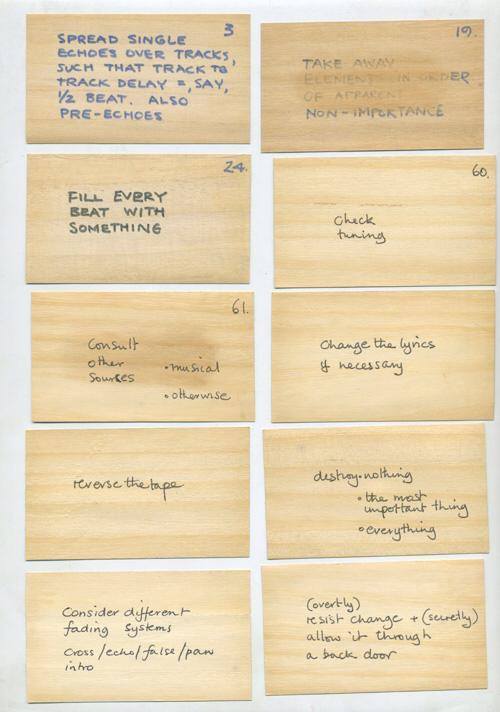 3
SPREAD SINGLE
ECHOES OVER TRACKS,
SUCH THAT TRACK TO
TRACK DELAY =, SAY,
1/2 BEAT. ALSO
PRE-ECHOES
19.
TAKE AWAY
ELEMENTS IN ORDER
OF APPARENT
NON-IMPORTANCE
24.
FILL EVERY
BEAT WITH
SOMETHING
60.
Check
tuning
61.
Consult
other
sources
• musical
• otherwise
Change the lyrics
if necessary
reverse the tape
destroy • nothing
• the most
important thing
• everything
Consider different
fading systems
Cross/echo/false/pan
intro
(overtly)
resist change + (secretly)
allow it through
a back door